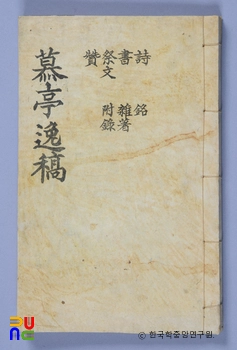 詩 銘
書 雜著
祭文 附錄
贊
慕亭逸稿
© 한국학중앙연구원